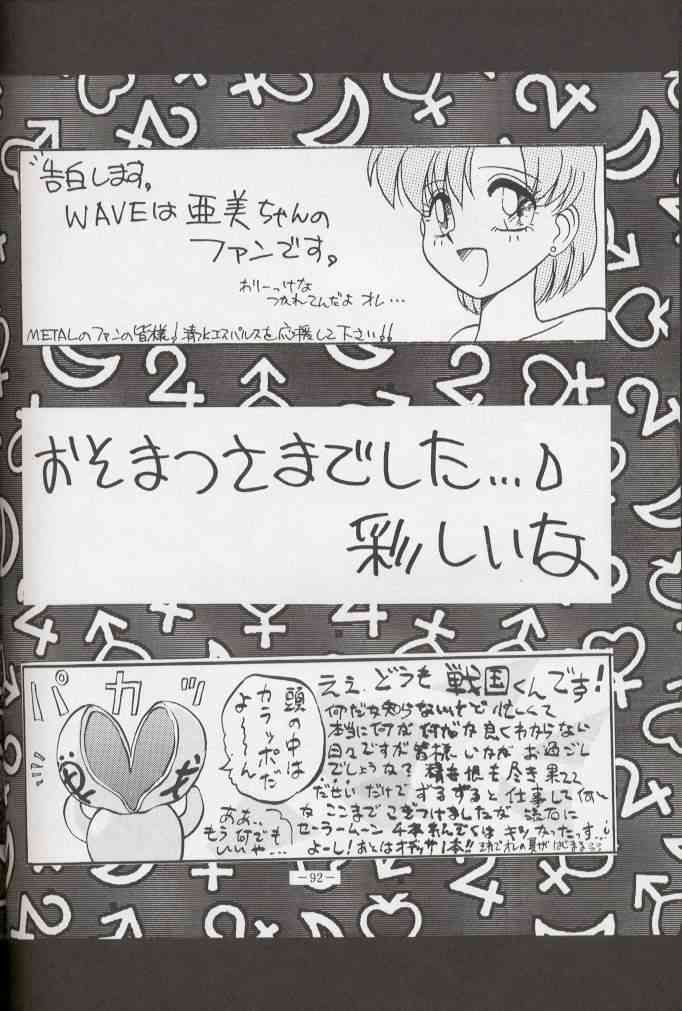 告白します。
WAVEは亜美ちゃんの
ファンです。
おりーっけな
つかれてんだよ オレ…
METALのファンの皆様!清水エスパルスを応援して下さい!!
おそまつさまでした…
彩しいな
パカッ
頭の中は
カラッポだ
よ〜〜ん
ああ..
もう何でも
いいや…
ええ、どうも戦国くんです!
何だか知らないけど忙しくて
本当に何が何だか良くわからない
日々ですが皆様いかがお過ごし
でしょうか? 精も根も尽き果てて
だせいだけでずるずると仕事して何と
か ここまでこぎつけましたが 流石に
セーラームーン チネんでくはキツかったっす..!
よーし!あとは 1本!!
－92－